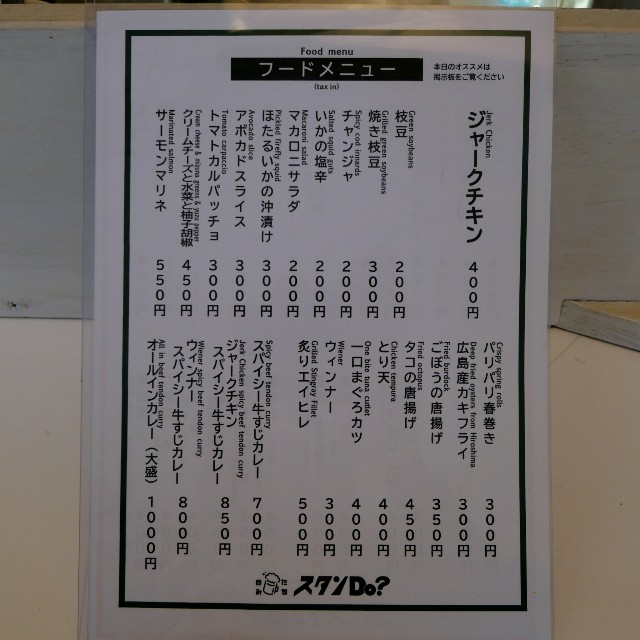 Food menu
フードメニュー
(tax in)
本日のオススメは
掲示板をご覧ください
Jerk Chicken
ジャークチキン 400円
Green soybeans
枝豆 200円
Grilled green soybeans
焼き枝豆 300円
Spicy cod innards
チャンジャ 200円
Salted squid guts
いかの塩辛 200円
Macaroni salad
マカロニサラダ 200円
Pickled firefly squid
ほたるいかの沖漬け 300円
Avocado slice
アボカドスライス 300円
Tomato carpaccio
トマトカルパッチョ 300円
Cream cheese & mizuna greens & yuzu pepper
クリームチーズと水菜と柚子胡椒 450円
Marinated salmon
サーモンマリネ 550円
Crispy spring rolls
パリパリ春巻き 300円
Deep fried oysters from Hiroshima
広島産カキフライ 300円
Fried burdock
ごぼうの唐揚げ 350円
Fried octopus
タコの唐揚げ 450円
Chicken tempura
とり天 400円
One bite tuna cutlet
一口まぐろカツ 400円
Wiener
ウィンナー 300円
Grilled Stingray Fillet
炙りエイヒレ 500円
Spicy beef tendon curry
スパイシー牛すじカレー 700円
Jerk Chicken spicy beef tendon curry
ジャークチキン
スパイシー牛すじカレー 850円
Wiener spicy beef tendon curry
ウィンナー
スパイシー牛すじカレー 800円
All in beef tendon curry
オールインカレー（大盛） 1000円
スタンDo?